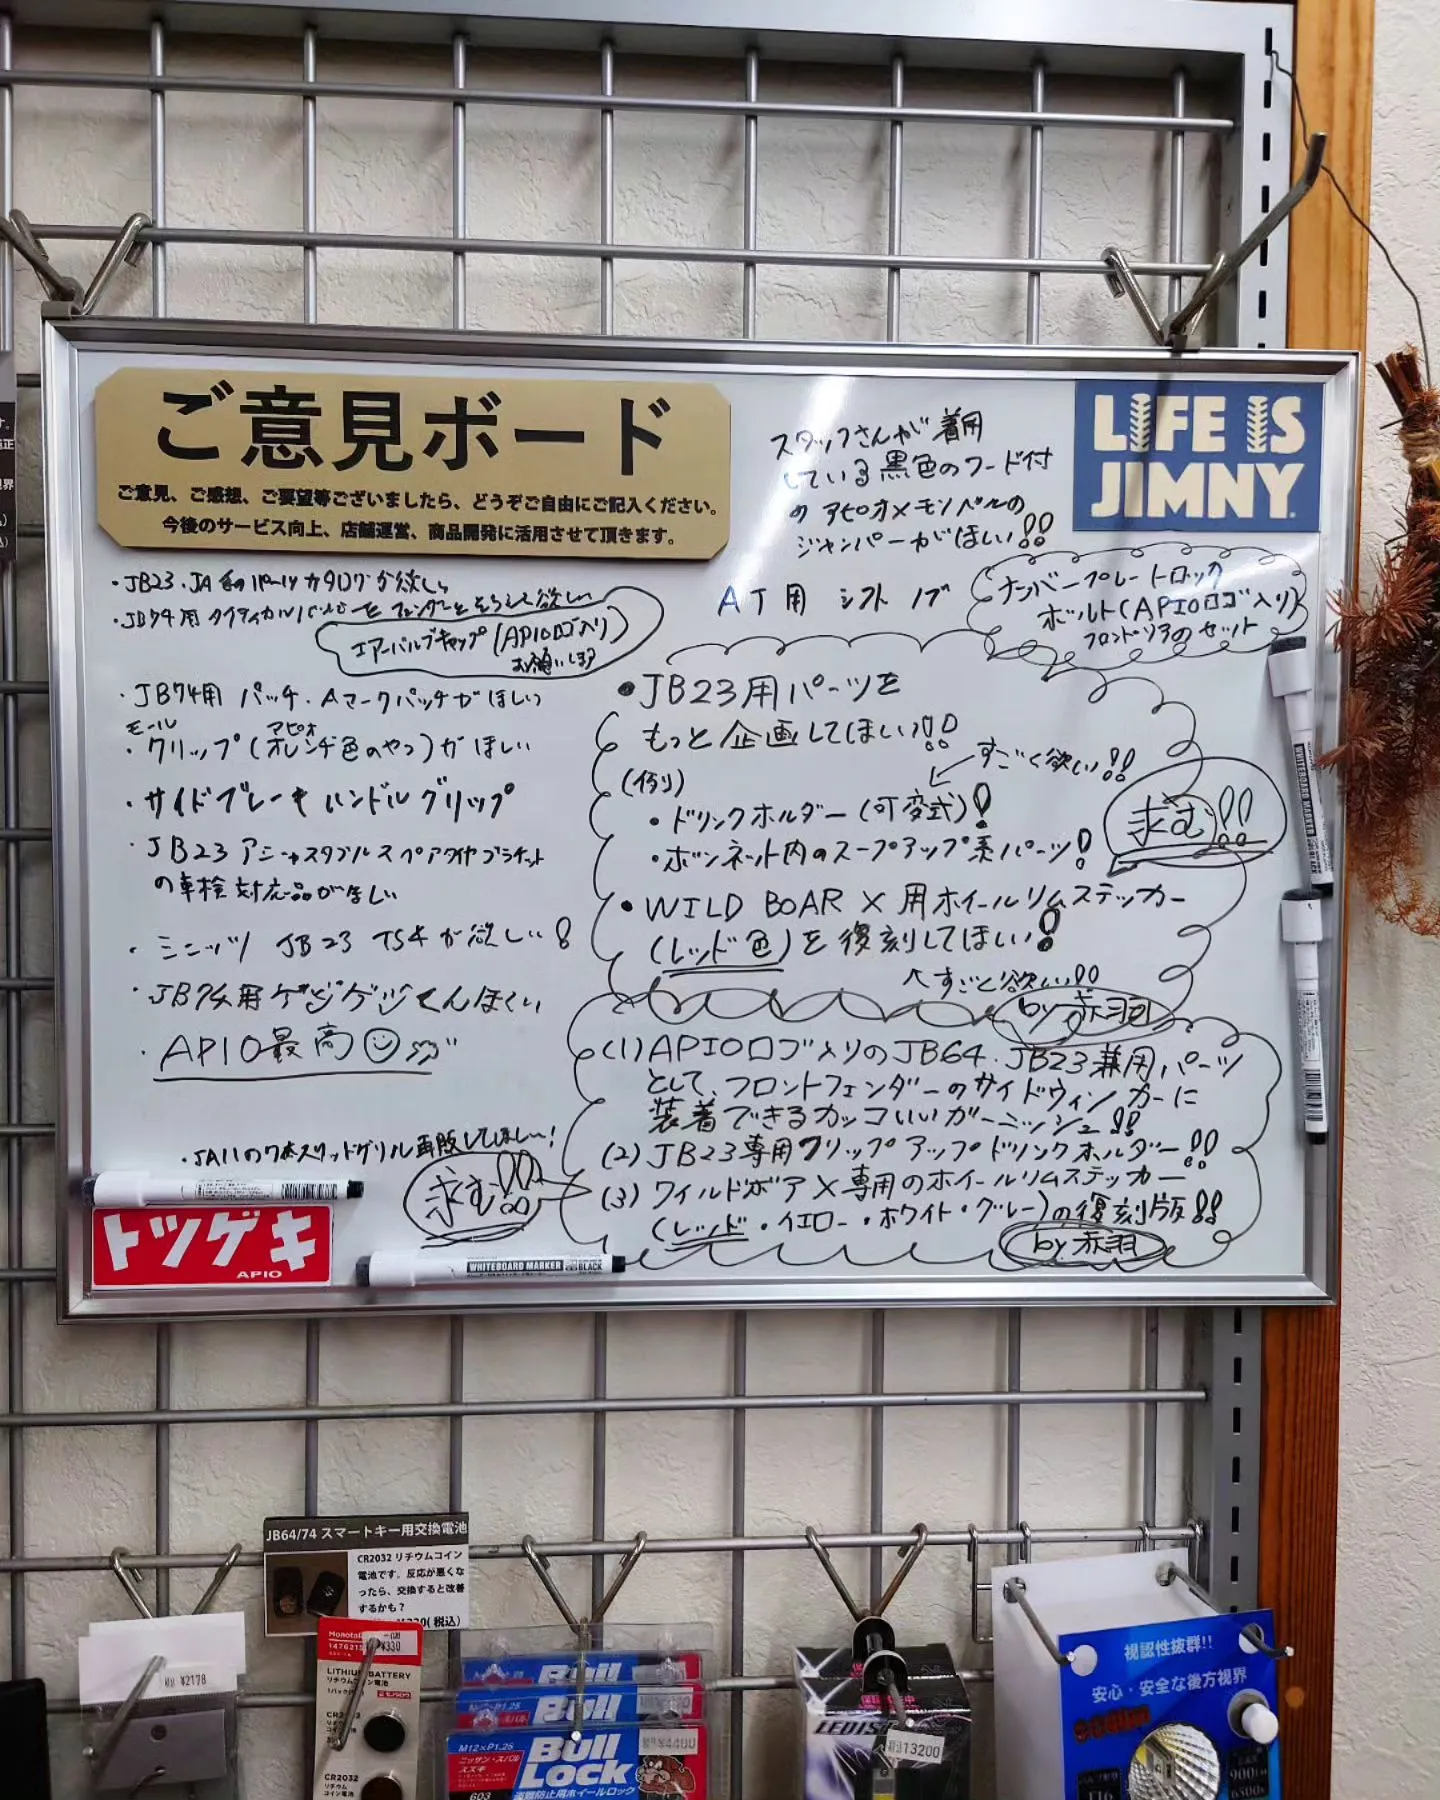 ご意見ボード
ご意見、ご感想、ご要望等ございましたら、どうぞご自由にご記入ください。
今後のサービス向上、店舗運営、商品開発に活用させて頂きます。
スタッフさんが着用
している黒色のフード付
の アピオ×モノベルの
ジャンパーがほしい!!
LIFE IS
JIMNY
・JB23・JA系のパーツカタログが欲しい
・JB74用 タクティカル
エアーバルブキャップ(APIOロゴ入り)
お願いします
AT用 シフトノブ
ナンバープレートロック
ボルト(APIOロゴ入り)
フロントリアのセット
・JB74用 パッチ・Aマークパッチがほしい
モール アピオ
・クリップ(オレンヂ色のやつ)がほしい
・サイドブレーキハンドルグリップ
・JB23 アジャスタブルスペアタイヤブラケット
の車検対応品がほしい
・ミニッツ JB23 TS4が欲しい!
・JB74用ゲジゲジくんほしい
・APIO最高
・JA11の7本スリットグリル再販してほしい〜!
求む!!
・JB23用パーツを
もっと企画してほしい!!
(例)
すごく欲しい!!
・ドリンクホルダー(可変式)!
・ボンネット内のスープアップ系パーツ!
求む!!
・WILD BOAR X 用ホイールリムステッカー
(レッド色)を復刻してほしい!
すごく欲しい!!
by 赤羽
(1)APIOロゴ入りのJB64.JB23兼用パーツ
として、フロントフェンダーのサイドウィンカーに
装着できるカッコいいガーニッシュ!!
(2)JB23専用クリップアップドリンクホルダー!!
(3)ワイルドボアX専用のホイールリムステッカー
(レッド・イエロー・ホワイト・グレー)の復刻版!!
by 赤羽
トツゲキ
APIO
WHITEBOARD MARKER
BLACK
JB64/74 スマートキー用交換電池
CR2032 リチウムコイン
電池です。反応が悪くな
ったら、交換すると改善
するかも?
¥330(税込)
¥2178
¥330
LITHIUM BATTERY
リチウムコイン電池
CR2032
CR2032
リチウム
コイン電池
Bull
Bull
M12×P1.25
ニッサン・スバル
スズキ
603
Bull
LOCK
盗難防止用ホイールロック
¥4400
13200
視認性抜群!!
安心・安全な後方視界
T16
6500K